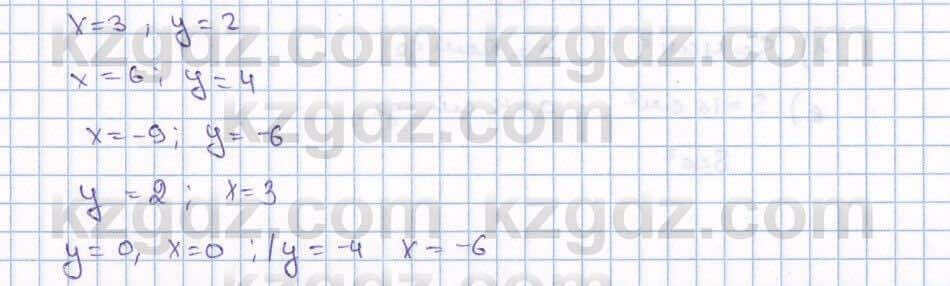 x=3, y=2
x=6; y=4
x=-9; y=-6
y=2; x=3
y=0, x=0; / y=-4 x=-6
kzgdz.com kzgdz.com
kzgdz.com
kzgdz.com kzgdz.com